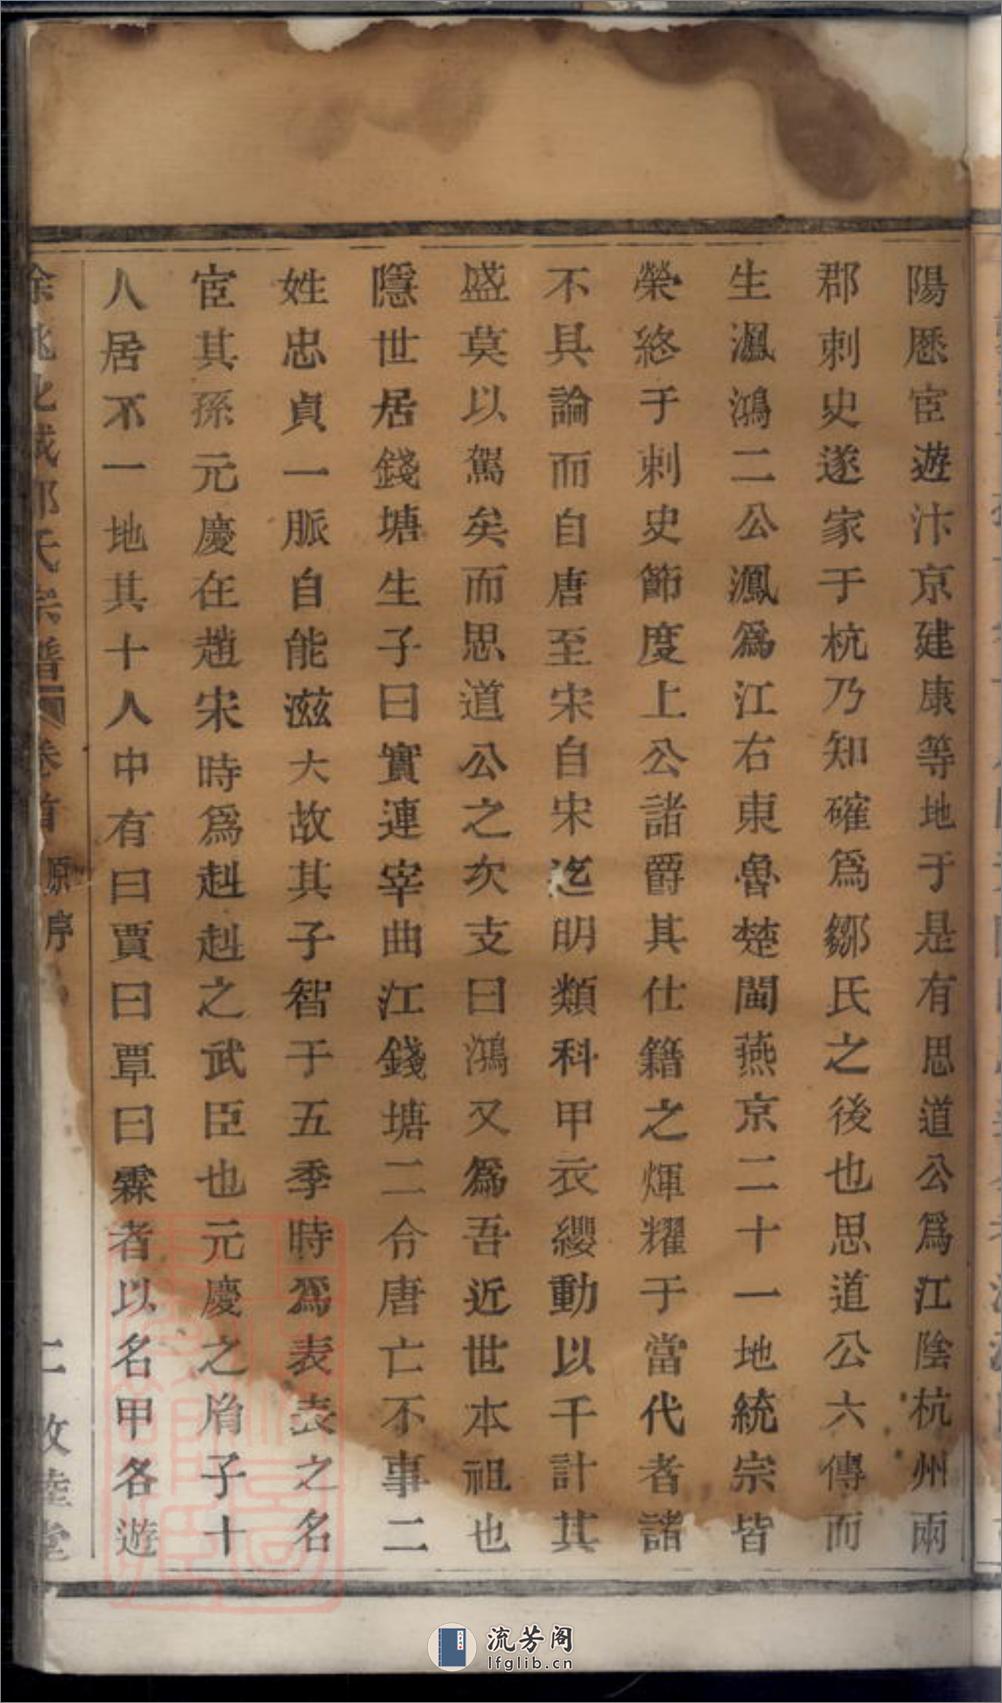 陽歷宦遊汴京建康等地于是有思道公爲江陰杭州兩
郡刺史遂家于杭乃知確爲鄒氏之後也思道公六傳而
生鳳鴻二公鳳爲江右東魯楚閩燕京二十一地統宗皆
榮終于刺史節度上公諸爵其仕籍之煇耀于當代者諸
不具論而自唐至宋自宋迄明類科甲衣纓動以千計其
盛莫以駕矣而思道公之次支曰鴻又爲吾近世本祖也
隱世居錢塘生子曰實連宰曲江錢塘二令唐亡不事二
姓忠貞一脈自能滋大故其子智于五季時爲表表之名
宦其孫元慶在趙宋時爲赳赳之武臣也元慶之脩子十
人居不一地其十人中有曰賈曰覃曰霖者以名甲各遊
氏宗譜 卷首 原序 二 敦睦堂
流芳阁
lfglib.cn